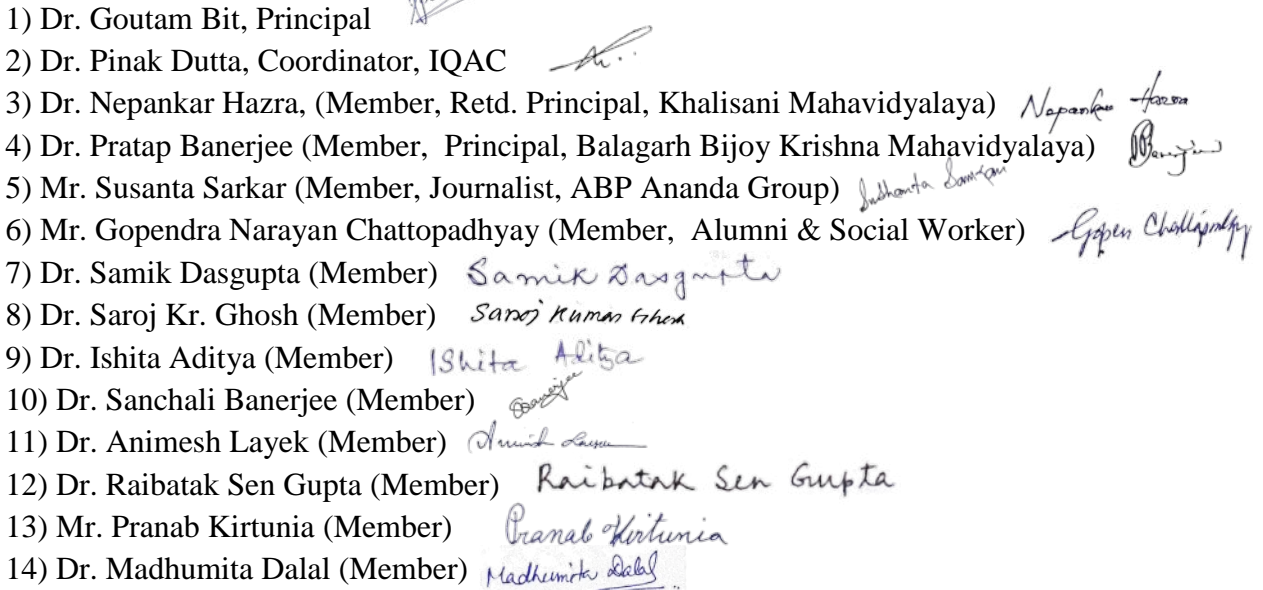 1) Dr. Goutam Bit, Principal
2) Dr. Pinak Dutta, Coordinator, IQAC
3) Dr. Nepankar Hazra, (Member, Retd. Principal, Khalisani Mahavidyalaya) Nepankar Hazra
4) Dr. Pratap Banerjee (Member, Principal, Balagarh Bijoy Krishna Mahavidyalaya) PBanerjee
5) Mr. Susanta Sarkar (Member, Journalist, ABP Ananda Group) Sushanta Sarkar
6) Mr. Gopendra Narayan Chattopadhyay (Member, Alumni & Social Worker) Gopen Chattopadhyay
7) Dr. Samik Dasgupta (Member) Samik Dasgupta
8) Dr. Saroj Kr. Ghosh (Member) Saroj Kumar Ghosh
9) Dr. Ishita Aditya (Member) Ishita Aditya
10) Dr. Sanchali Banerjee (Member) SBanerjee
11) Dr. Animesh Layek (Member) Animesh Layek
12) Dr. Raibatak Sen Gupta (Member) Raibatak Sen Gupta
13) Mr. Pranab Kirtunia (Member) Pranab Kirtunia
14) Dr. Madhumita Dalal (Member) Madhumita Dalal